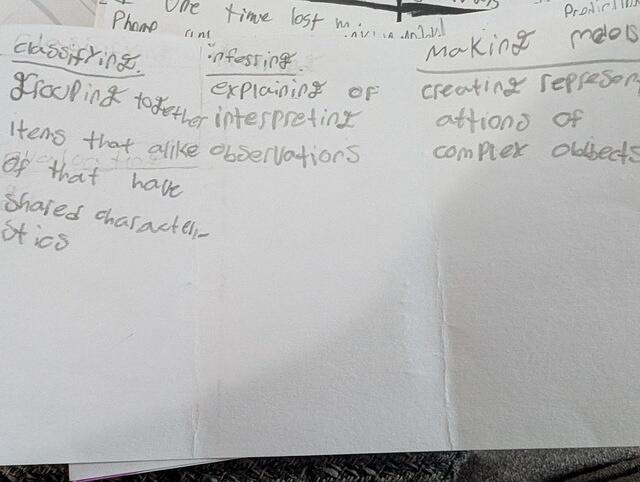 one time lost
Phone
classifying
grouping together
items that alike
of that have
shared character,-
stics
infessing
explaining of
interpreting
observations
Making models
creating represen
attions of
complex obbects